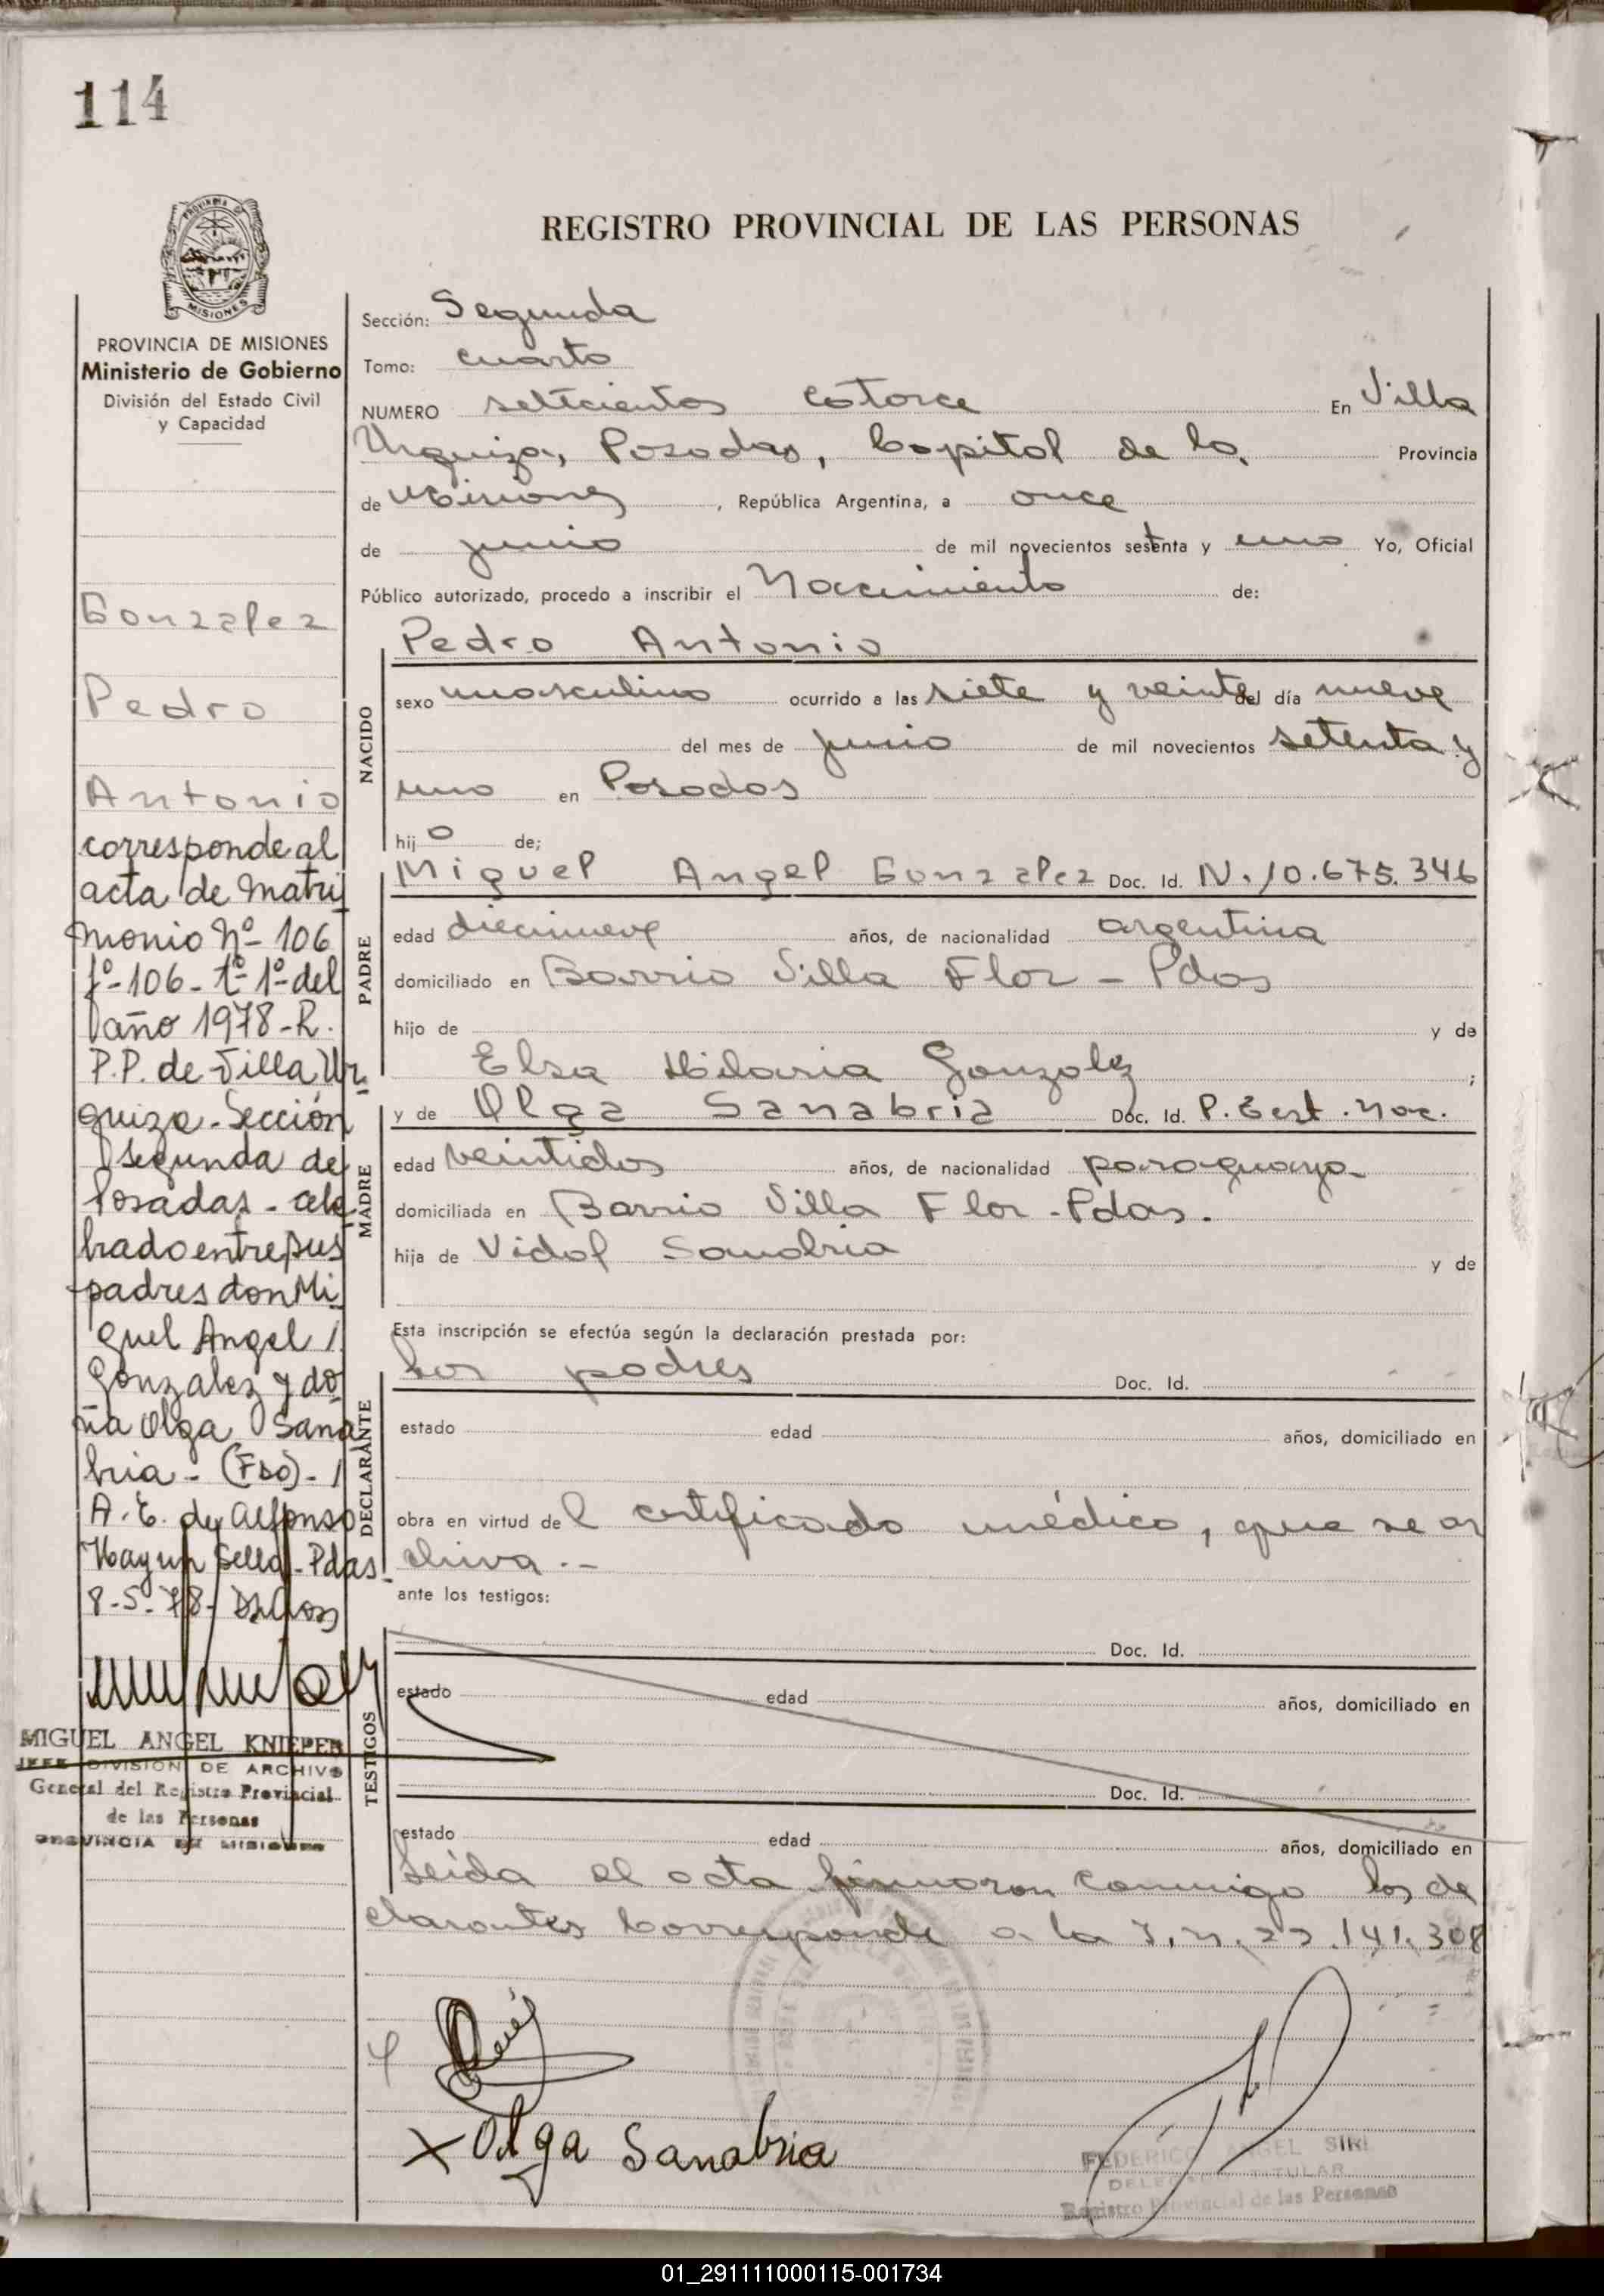 114
PROVINCIA DE MISIONES
MISIONES
PROVINCIA DE MISIONES
Ministerio de Gobierno
División del Estado Civil
y Capacidad
Gonzalez
Pedro
Antonio
corresponde al
acta de matri
monio Nº 106
fº-106-tº-1º-del
año 1978-R.
P.P. de Villa Ur
quiza-Sección
Segunda de
Posadas-cele
brado entre sus
padres don Mi
guel Angel
Gonzalez y do
ña Olga Sana
bria-(Fdo)-
A. E. de Alfonso
Hay un sello-Pdas-
8-5-78-
MIGUEL ANGEL KNIEPER
JEFE DIVISION DE ARCHIVO
General del Registro Provincial
de las Personas
PROVINCIA DE MISIONES
REGISTRO PROVINCIAL DE LAS PERSONAS
Sección: Segunda
Tomo: cuarto
NUMERO setecientos catorce En Villa
Urquiza, Posadas, Capital de la Provincia
de Misiones, República Argentina, a once
de junio de mil novecientos setenta y uno Yo, Oficial
Público autorizado, procedo a inscribir el Nacimiento de:
NACIDO
Pedro Antonio
sexo masculino ocurrido a las siete y veinte del día nueve
del mes de junio de mil novecientos setenta y
uno en Posadas
hijo de;
PADRE
Miguel Angel Gonzalez Doc. Id. N. 10.675.346
edad diecinueve años, de nacionalidad argentina
domiciliado en Barrio Villa Flor - Pdas
hijo de y de
Elsa Hilaria Gonzalez ;
MADRE
y de Olga Sanabria Doc. Id. P. Cert. Nac.
edad veintidos años, de nacionalidad paraguaya
domiciliada en Barrio Villa Flor-Pdas.
hija de Vidal Sanabria y de
Esta inscripción se efectúa según la declaración prestada por:
DECLARANTE
los padres Doc. Id.
estado edad años, domiciliado en
obra en virtud del certificado médico, que se ar
chiva.-
ante los testigos:
TESTIGOS
Doc. Id.
estado edad años, domiciliado en
Doc. Id.
estado edad años, domiciliado en
Leida el acta firmaron conmigo los de
clarantes Corresponde a la I.n. 22.141.308
X Olga Sanabria
FEDERICO ANGEL SIRI
DELEGADO TITULAR
Registro Provincial de las Personas
01_291111000115-001734